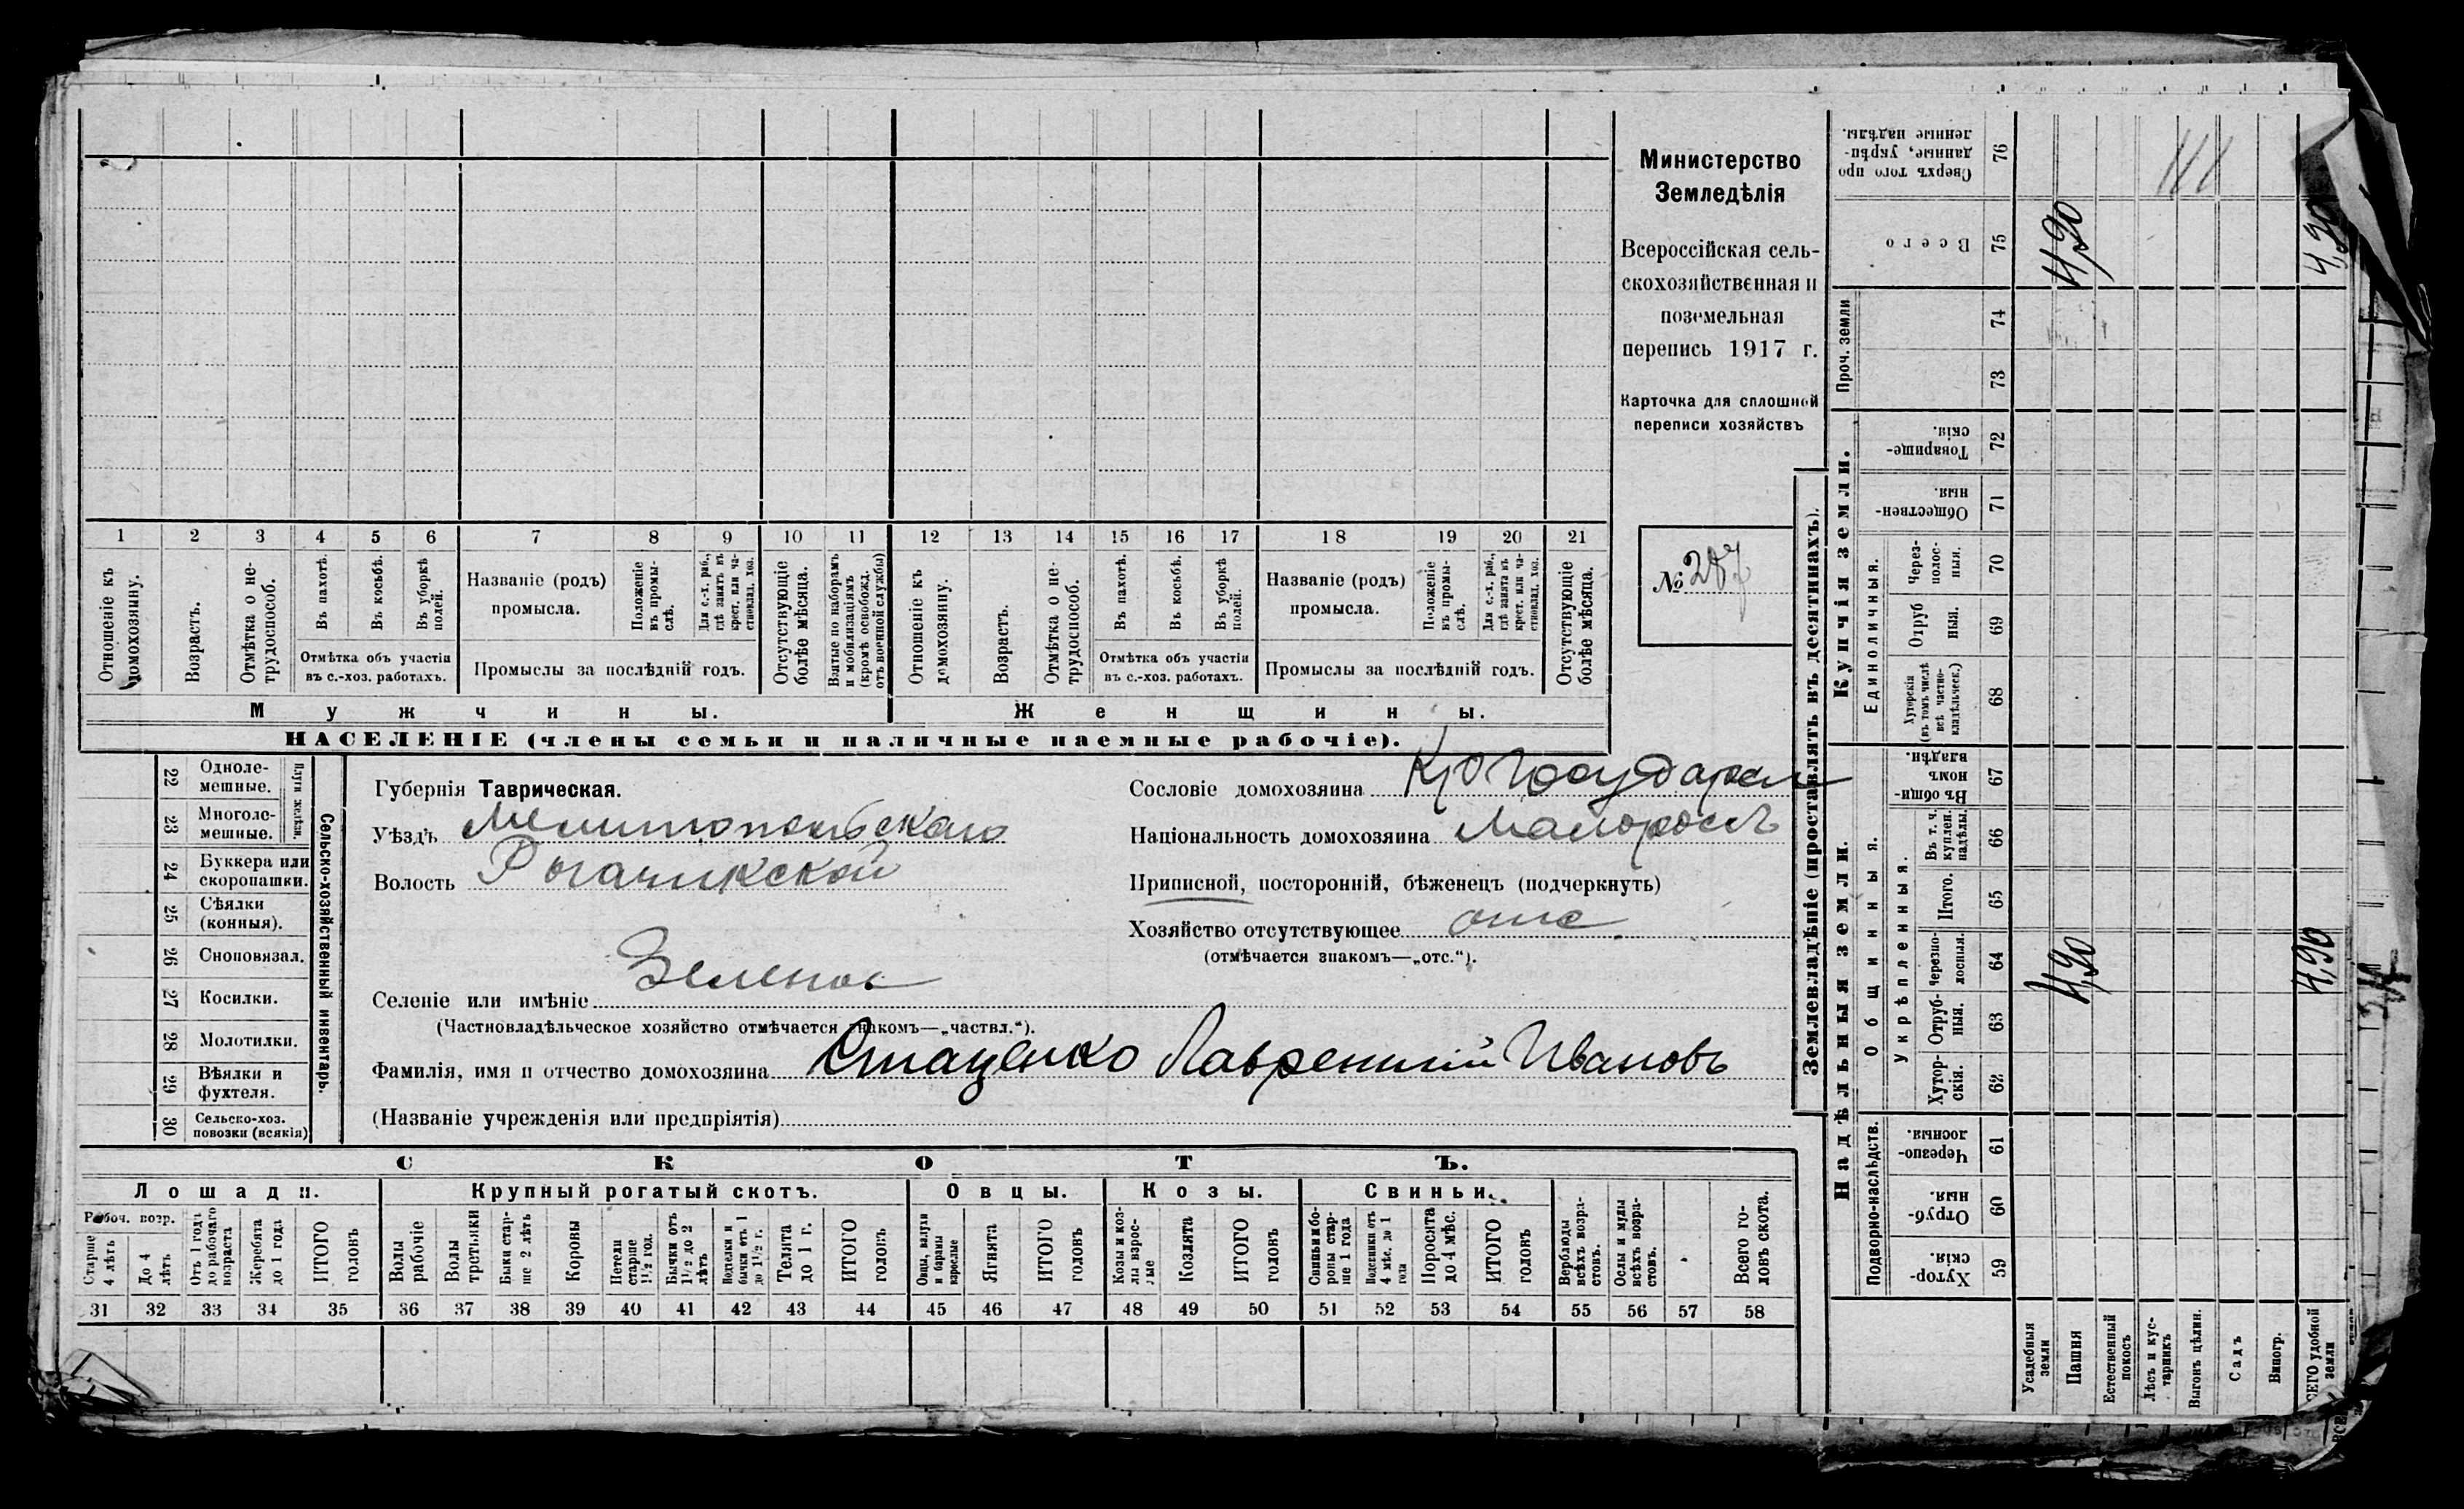 1 2 3 4 5 6 7 8 9 10 11 12 13 14 15 16 17 18 19 20 21
Отношеніе къ домохозяину.
Возрастъ.
Отмѣтка о не-
трудоспособ.
Въ пахотѣ.
Въ косьбѣ.
Въ уборкѣ
полей.
Отмѣтка объ участіи
въ с.-хоз. работахъ.
Названіе (родъ)
промысла.
Положеніе
въ промы-
слѣ.
Для с.-х. раб.,
гдѣ занятъ въ
крест. или ча-
стновлад. хоз.
Промыслы за послѣдній годъ.
Отсутствующіе
болѣе мѣсяца.
Взятые по наборамъ
и мобилизаціямъ
(кромѣ освобожд.
отъ военной службы)
Отношеніе къ
домохозяину.
Возрастъ.
Отмѣтка о не-
трудоспособ.
Въ пахотѣ.
Въ косьбѣ.
Въ уборкѣ
полей.
Отмѣтка объ участіи
въ с.-хоз. работахъ.
Названіе (родъ)
промысла.
Положеніе
въ промы-
слѣ.
Для с.-х. раб.,
гдѣ занята въ
крест. или ча-
стновлад. хоз.
Промыслы за послѣдній годъ.
Отсутствующіе
болѣе мѣсяца.
Мужчины.
Женщины.
НАСЕЛЕНІЕ (члены семьи и наличные наемные рабочіе).
Министерство
Земледѣлія
Всероссійская сель-
скохозяйственная и
поземельная
перепись 1917 г.
Карточка для сплошной
переписи хозяйствъ
№ 287
22 Одноле-
мешные.
23 Многоле-
мешные.
24 Буккера или
скоропашки.
25 Сѣялки
(конныя).
26 Сноповязал.
27 Косилки.
28 Молотилки.
29 Вѣялки и
фухтеля.
30 Сельско-хоз.
повозки (всякія)
Сельско-хозяйственный инвентарь.
Губернія Таврическая.
Уѣздъ Мелитопольскаго
Волость Рогачикской
Селеніе или имѣніе Зеленое
(Частновладѣльческое хозяйство отмѣчается знакомъ—„частвл.“).
Фамилія, имя и отчество домохозяина Стаценко Лаврентій Ивановъ
(Названіе учрежденія или предпріятія)
Сословіе домохозяина Кр Государст
Національность домохозяина Малороссъ
Приписной, посторонній, бѣженецъ (подчеркнуть)
Хозяйство отсутствующее отс.
(отмѣчается знакомъ—„отс.“).
СКОТЪ.
Лошади.
Крупный рогатый скотъ.
Овцы.
Козы.
Свиньи.
Рабоч. возр.
Старше
4 лѣтъ
До 4
лѣтъ
Отъ 1 года
до рабочаго
возраста
Жеребята
до 1 года
ИТОГО
головъ
Волы
рабочіе
Волы
третьяки
Быки стар-
ше 2 лѣтъ
Коровы
Нетели
старше
1½ год.
Бычки отъ
1½ до 2
лѣтъ
Водтелки и
бычки отъ 1
до 1½ г.
Телята
до 1 г.
ИТОГО
головъ
Овцы, валухи
и бараны
взрослые
Ягнята
ИТОГО
головъ
Козы и коз-
лы взрос-
лые
Козлята
ИТОГО
головъ
Свиньи и бо-
ровы стар-
ше 1 года
Подсвинки отъ
4 мѣс. до 1
года
Поросята
до 4 мѣс.
ИТОГО
головъ
Верблюды
всѣхъ возра-
стовъ.
Ослы и мулы
всѣхъ возра-
стовъ.
Всего го-
ловъ скота.
31 32 33 34 35 36 37 38 39 40 41 42 43 44 45 46 47 48 49 50 51 52 53 54 55 56 57 58
Землевладѣніе (проставлять въ десятинахъ).
Надѣльныя земли.
Купчія земли.
Проч. земли
Подворно-наслѣдств.
Общинныя.
Укрѣпленныя.
Единоличныя.
Сверхъ того про
данные, укрѣп-
ленные надѣлы. 76
Всего 75 4,90 4,90
74
73
Товарище-
скія. 72
Обществен-
ныя. 71
Через-
полос-
ныя. 70
Отруб
ныя. 69
Хуторскія
(въ томъ числѣ
всѣ частно-
владѣльческ.) 68
Въ общи
номъ
владѣн. 67
Въ т. ч.
куплен.
надѣлы. 66
Итого. 65
Черезпо-
лосныя. 64 4,90 4,90
Отруб-
ныя. 63
Хутор-
скія. 62
Черезпо-
лосныя. 61
Отруб-
ныя. 60
Хутор-
скія. 59
Усадебныя
земли
Пашня
Естественный
покосъ
Лѣсъ и кус-
тарникъ
Выгонъ цѣлин.
Садъ
Виногр.
СЕГО удобной
земли